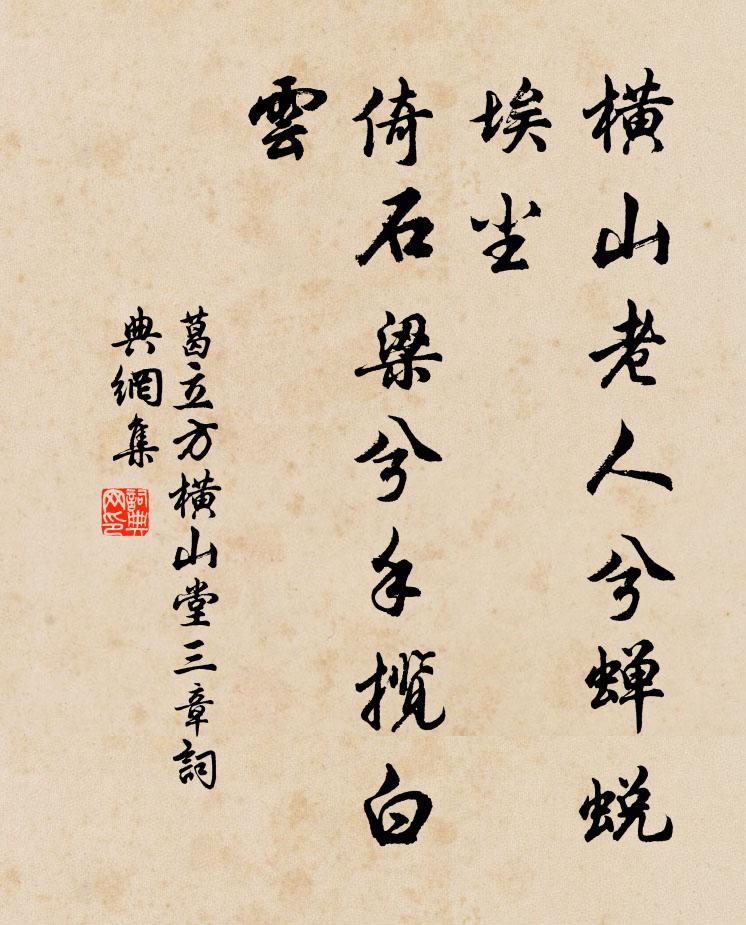 橫山老人兮蝉蜕
埃尘
倚石梁兮手揽白
雲
葛立方橫山堂三章詞
典網集
詞典网印